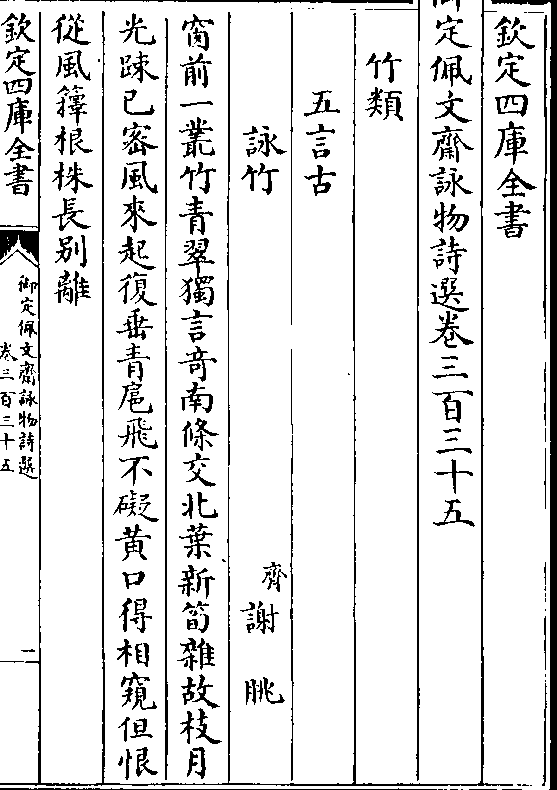 欽定四庫全書
御定佩文齋詠物詩選卷三百三十五
竹類
五言古
詠竹
齊謝朓
窗前一叢竹青翠獨言竒南條交北葉新筍雜故枝月
光踈已密風來起復垂青扈飛不礙黄口得相窺但恨
從風籜根株長别離
欽定四庫全書
御定佩文齋詠物詩選
卷三百三十五
二